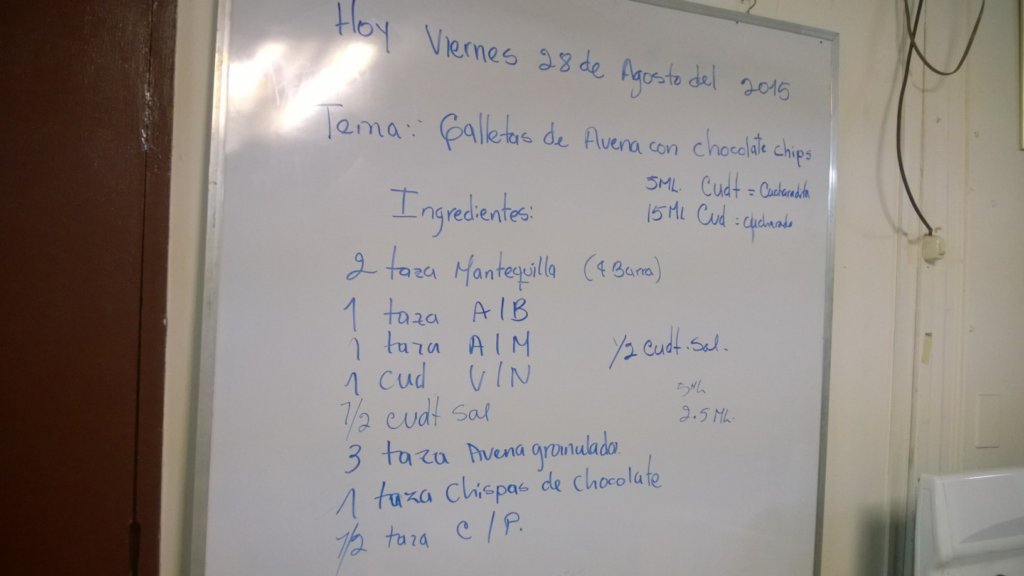 Hoy Viernes 28 de Agosto del 2015
Tema: Galletas de Avena con chocolate chips
5ML. Cudt = Cucharadita
15ML Cud = cucharada
Ingredientes:
2 taza Mantequilla (4 Barra)
1 taza A/B
1 taza A/M
1/2 cudt. Sal.
1 cud V/N
5ML
1/2 cudt Sal
2.5 ML.
3 taza Avena granulada.
1 taza Chispas de chocolate
1/2 taza C/P.